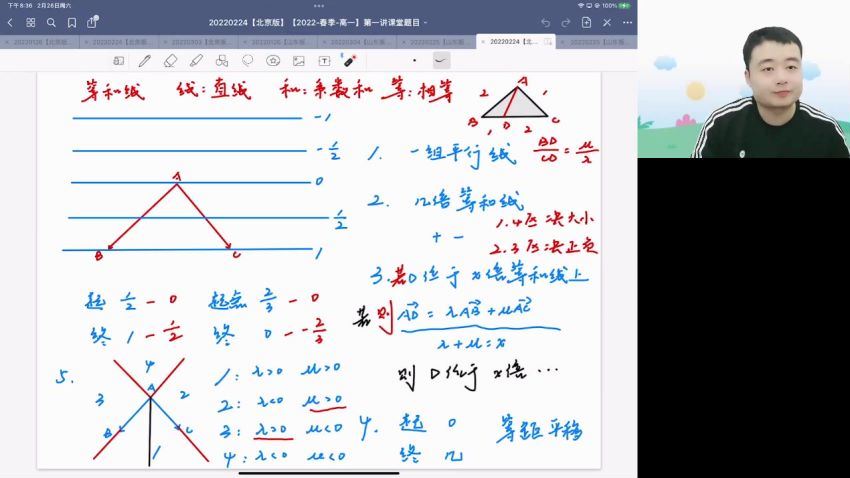 下午8:36 2月26日周六
100%
20220224【北京版】【2022-春季-高一】第一讲课堂题目
等和线 线:直线 和:系数和 等:相等
A
2
1
B
D
C
1
2
-1
-1/2
0
1/2
1
A
B
C
1. 一组平行线 BD/CD = μ/λ
2. 几倍等和线
+ -
1.4区 决大小
2.3区 决正负
3. 若D位于x倍等和线上
则 AD = λAB + μAC
λ+μ=x
若
则 D位于x倍…
起 1/2 - 0 起点 2/3 - 0
终 1 - 1/2 终 0 - -2/3
5.
4
A
3
2
B
C
1
1: λ>0 μ>0
2: λ<0 μ>0
3: λ>0 μ<0
4: λ<0 μ<0
4. 起 0 等距平移
终 几